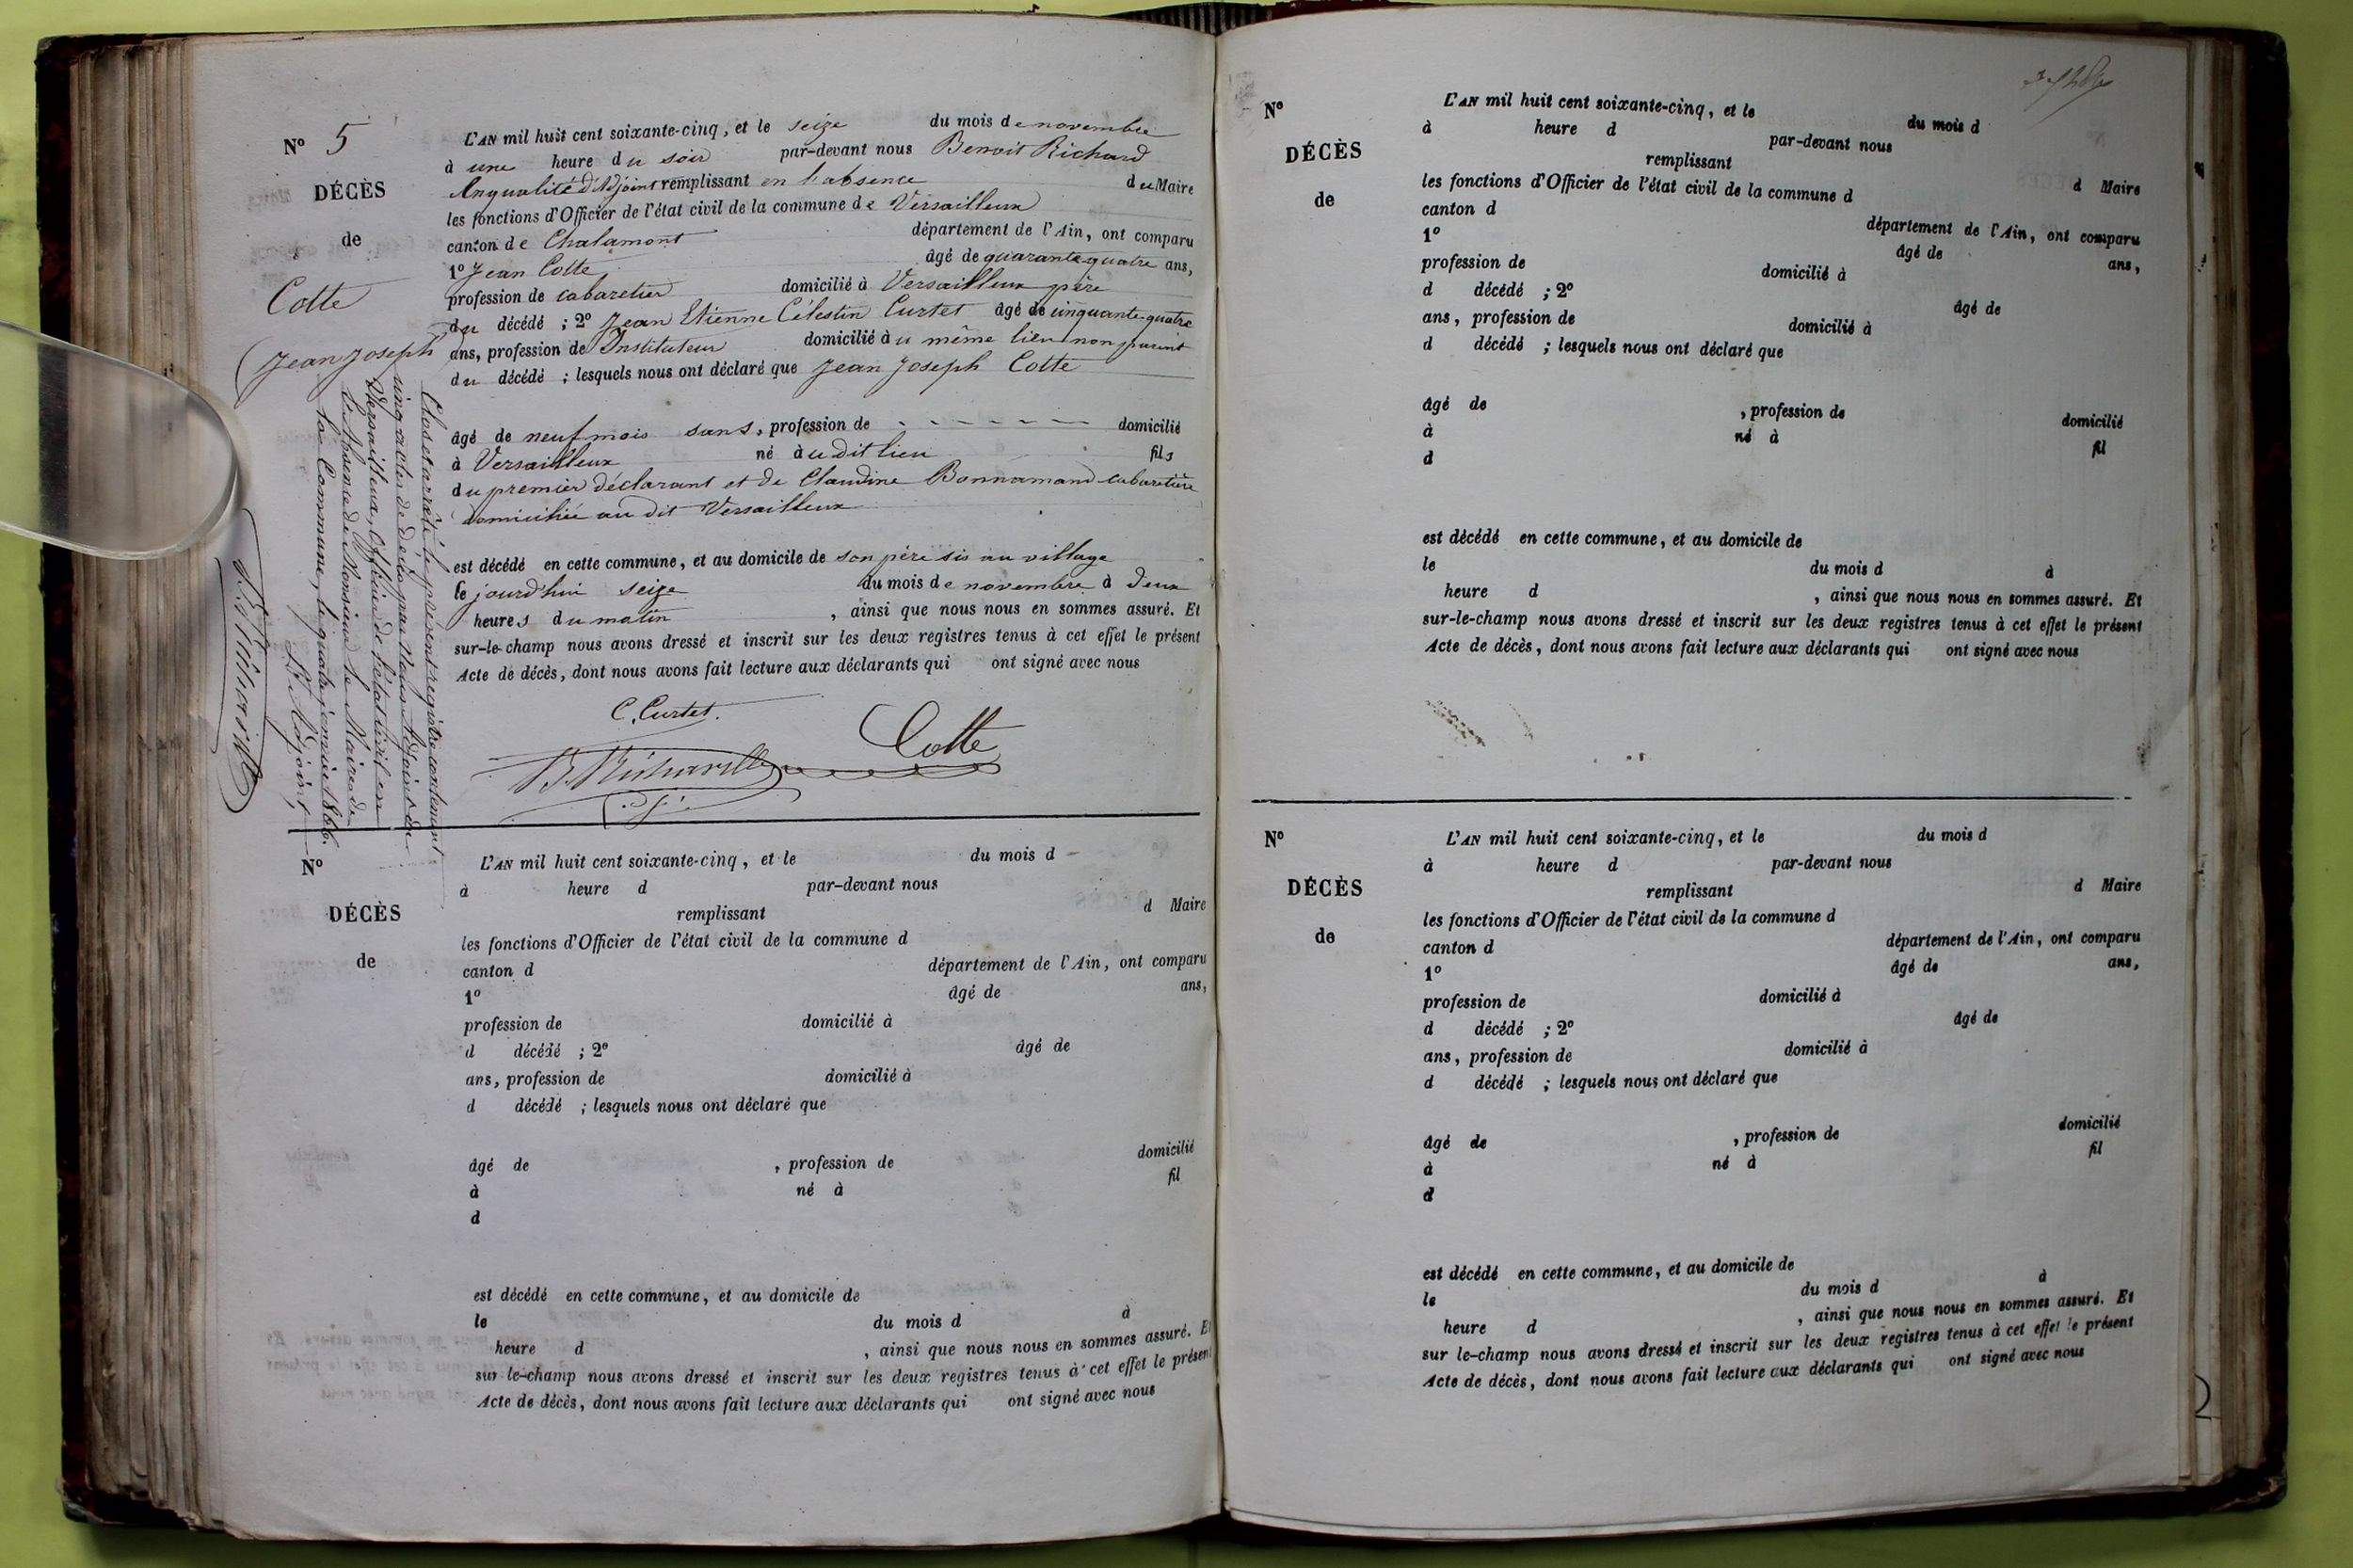 N° 5
DÉCÈS
de
Cotte
(Jean Joseph)
L'AN mil huit cent soixante-cinq, et le seize du mois de novembre
à une heure du soir par-devant nous Benoit Richard
En qualité d'Adjoint remplissant en l'absence du Maire
les fonctions d'Officier de l'état civil de la commune de Versailleux
canton de Chalamont département de l'Ain, ont comparu
1° Jean Cotte âgé de quarante quatre ans,
profession de cabaretier domicilié à Versailleux père
du décédé ; 2° Jean Etienne Célestin Curtet âgé de cinquante-quatre
ans, profession de Instituteur domicilié à u même lieu non parent
du décédé ; lesquels nous ont déclaré que Jean Joseph Cotte
âgé de neuf mois sans, profession de - - - - - - domicilié
à Versailleux né à u dit lieu fils
du premier déclarant et de Claudine Bonnamand cabaretière
domiciliée au dit Versailleux
est décédé en cette commune, et au domicile de son père sis au village
le jourd'hui seize du mois de novembre à deux
heures du matin , ainsi que nous nous en sommes assuré. Et
sur-le-champ nous avons dressé et inscrit sur les deux registres tenus à cet effet le présent
Acte de décès, dont nous avons fait lecture aux déclarants qui ont signé avec nous
C. Curtet.
Cotte
B. Richard
Clos et arrêté le présent registre contenant
cinq actes de décès par nous Adjoint de
Versailleux, Officier de l'état civil en
l'absence de Monsieur le Maire de
la Commune, le quatre janvier 1866.
L'Adjoint
B. Richard
N°
DÉCÈS
de
L'AN mil huit cent soixante-cinq, et le du mois d
à heure d par-devant nous
remplissant d Maire
les fonctions d'Officier de l'état civil de la commune d
canton d département de l'Ain, ont comparu
1° âgé de ans,
profession de domicilié à
d décédé ; 2° âgé de
ans, profession de domicilié à
d décédé ; lesquels nous ont déclaré que
âgé de , profession de domicilié
à né à fil
d
est décédé en cette commune, et au domicile de
le du mois d à
heure d , ainsi que nous nous en sommes assuré. Et
sur-le-champ nous avons dressé et inscrit sur les deux registres tenus à cet effet le présent
Acte de décès, dont nous avons fait lecture aux déclarants qui ont signé avec nous
N°
DÉCÈS
de
L'AN mil huit cent soixante-cinq, et le du mois d
à heure d par-devant nous
remplissant d Maire
les fonctions d'Officier de l'état civil de la commune d
canton d département de l'Ain, ont comparu
1° âgé de ans,
profession de domicilié à
d décédé ; 2° âgé de
ans, profession de domicilié à
d décédé ; lesquels nous ont déclaré que
âgé de , profession de domicilié
à né à fil
d
est décédé en cette commune, et au domicile de
le du mois d à
heure d , ainsi que nous nous en sommes assuré. Et
sur-le-champ nous avons dressé et inscrit sur les deux registres tenus à cet effet le présent
Acte de décès, dont nous avons fait lecture aux déclarants qui ont signé avec nous
N°
DÉCÈS
de
L'AN mil huit cent soixante-cinq, et le du mois d
à heure d par-devant nous
remplissant d Maire
les fonctions d'Officier de l'état civil de la commune d
canton d département de l'Ain, ont comparu
1° âgé de ans,
profession de domicilié à
d décédé ; 2° âgé de
ans, profession de domicilié à
d décédé ; lesquels nous ont déclaré que
âgé de , profession de domicilié
à né à fil
d
est décédé en cette commune, et au domicile de
le du mois d à
heure d , ainsi que nous nous en sommes assuré. Et
sur le-champ nous avons dressé et inscrit sur les deux registres tenus à cet effet le présent
Acte de décès, dont nous avons fait lecture aux déclarants qui ont signé avec nous
2